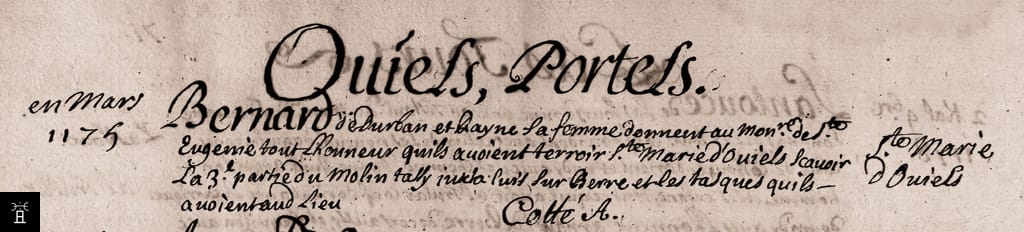 Quiels, Portels.
en Mars
1175
Bernard de Durban et Rayne sa femme donnent au mon.re de S.te
Eugenie tout Lhonneur quils avoient terroir S.te Marie d'Oviels scavoir
La 3.e partie du Molin tally juxta luis sur Berre et les tasques quils –
avoient aud Lieu
S.te Marie
d'Oviels
Cotté A.